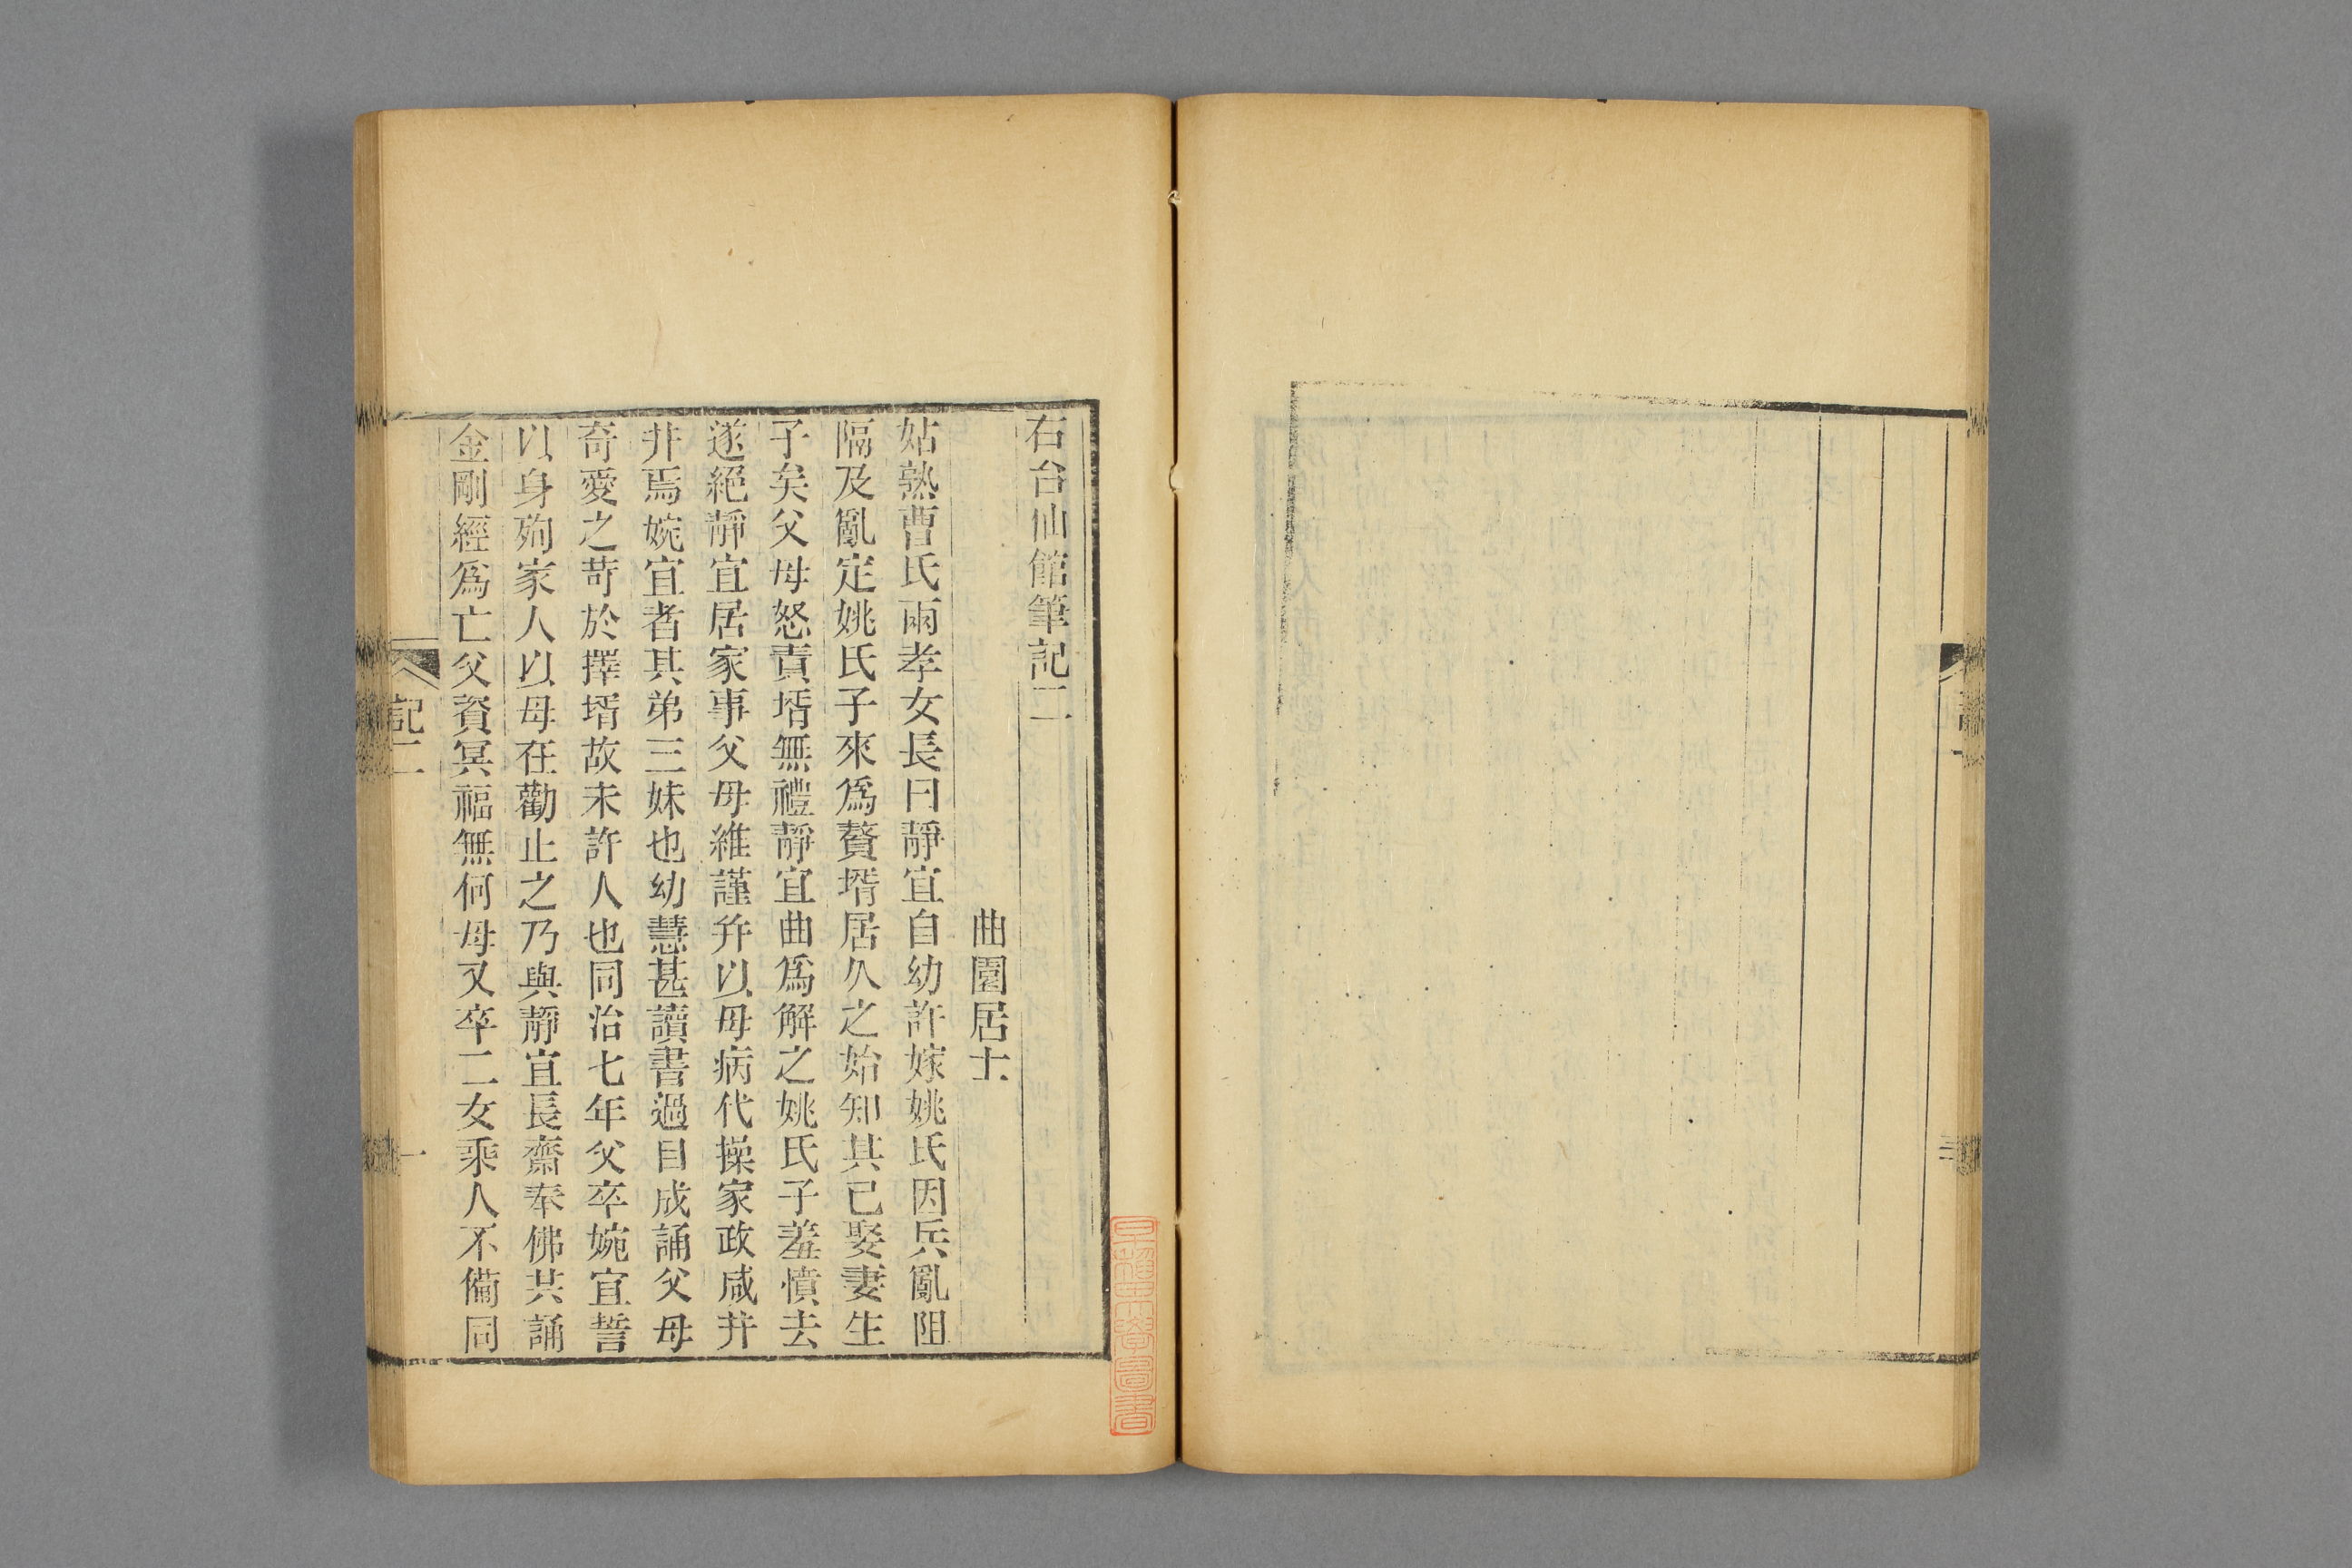 右台仙館筆記二
曲園居士
姑熟曹氏兩孝女長曰靜宜自幼許嫁姚氏因兵亂阻
隔及亂定姚氏子來爲贅壻居久之始知其已娶妻生
子矣父母怒責壻無禮靜宜曲爲解之姚氏子羞憤去
遂絕靜宜居家事父母維謹幷以母病代操家政咸井
井焉婉宜者其弟三妹也幼慧甚讀書過目成誦父母
奇愛之苛於擇壻故未許人也同治七年父卒婉宜誓
以身殉家人以母在勸止之乃與靜宜長齋奉佛共誦
金剛經爲亡父資冥福無何母又卒二女乘人不備同
記二
一